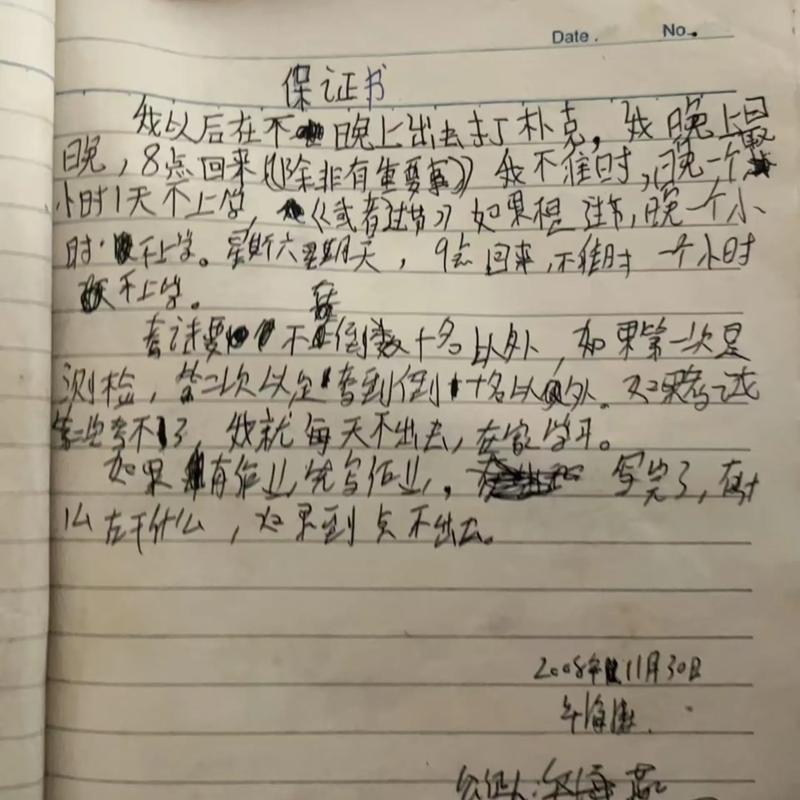 Date. No.
保证书
我以后在不晚上出去打朴克，我晚上最
晚，8点回来(《除非有重要事》) 我不准时，晚一个
小时1天不上学，《或者过节》如果想过节，晚一个小
时不上学。星期六星期天，9点回来，不准时一个小时
不上学。
考试要不在倒数十名以外，如果第一次是
测检，第二次以定考到倒十名以外。如果考试
第二次考不了，我就每天不出去，在家学习。
如果有作业先写作业，写完了，在
么在干什么，如果到点不出去。
2008年11月30日
证人：